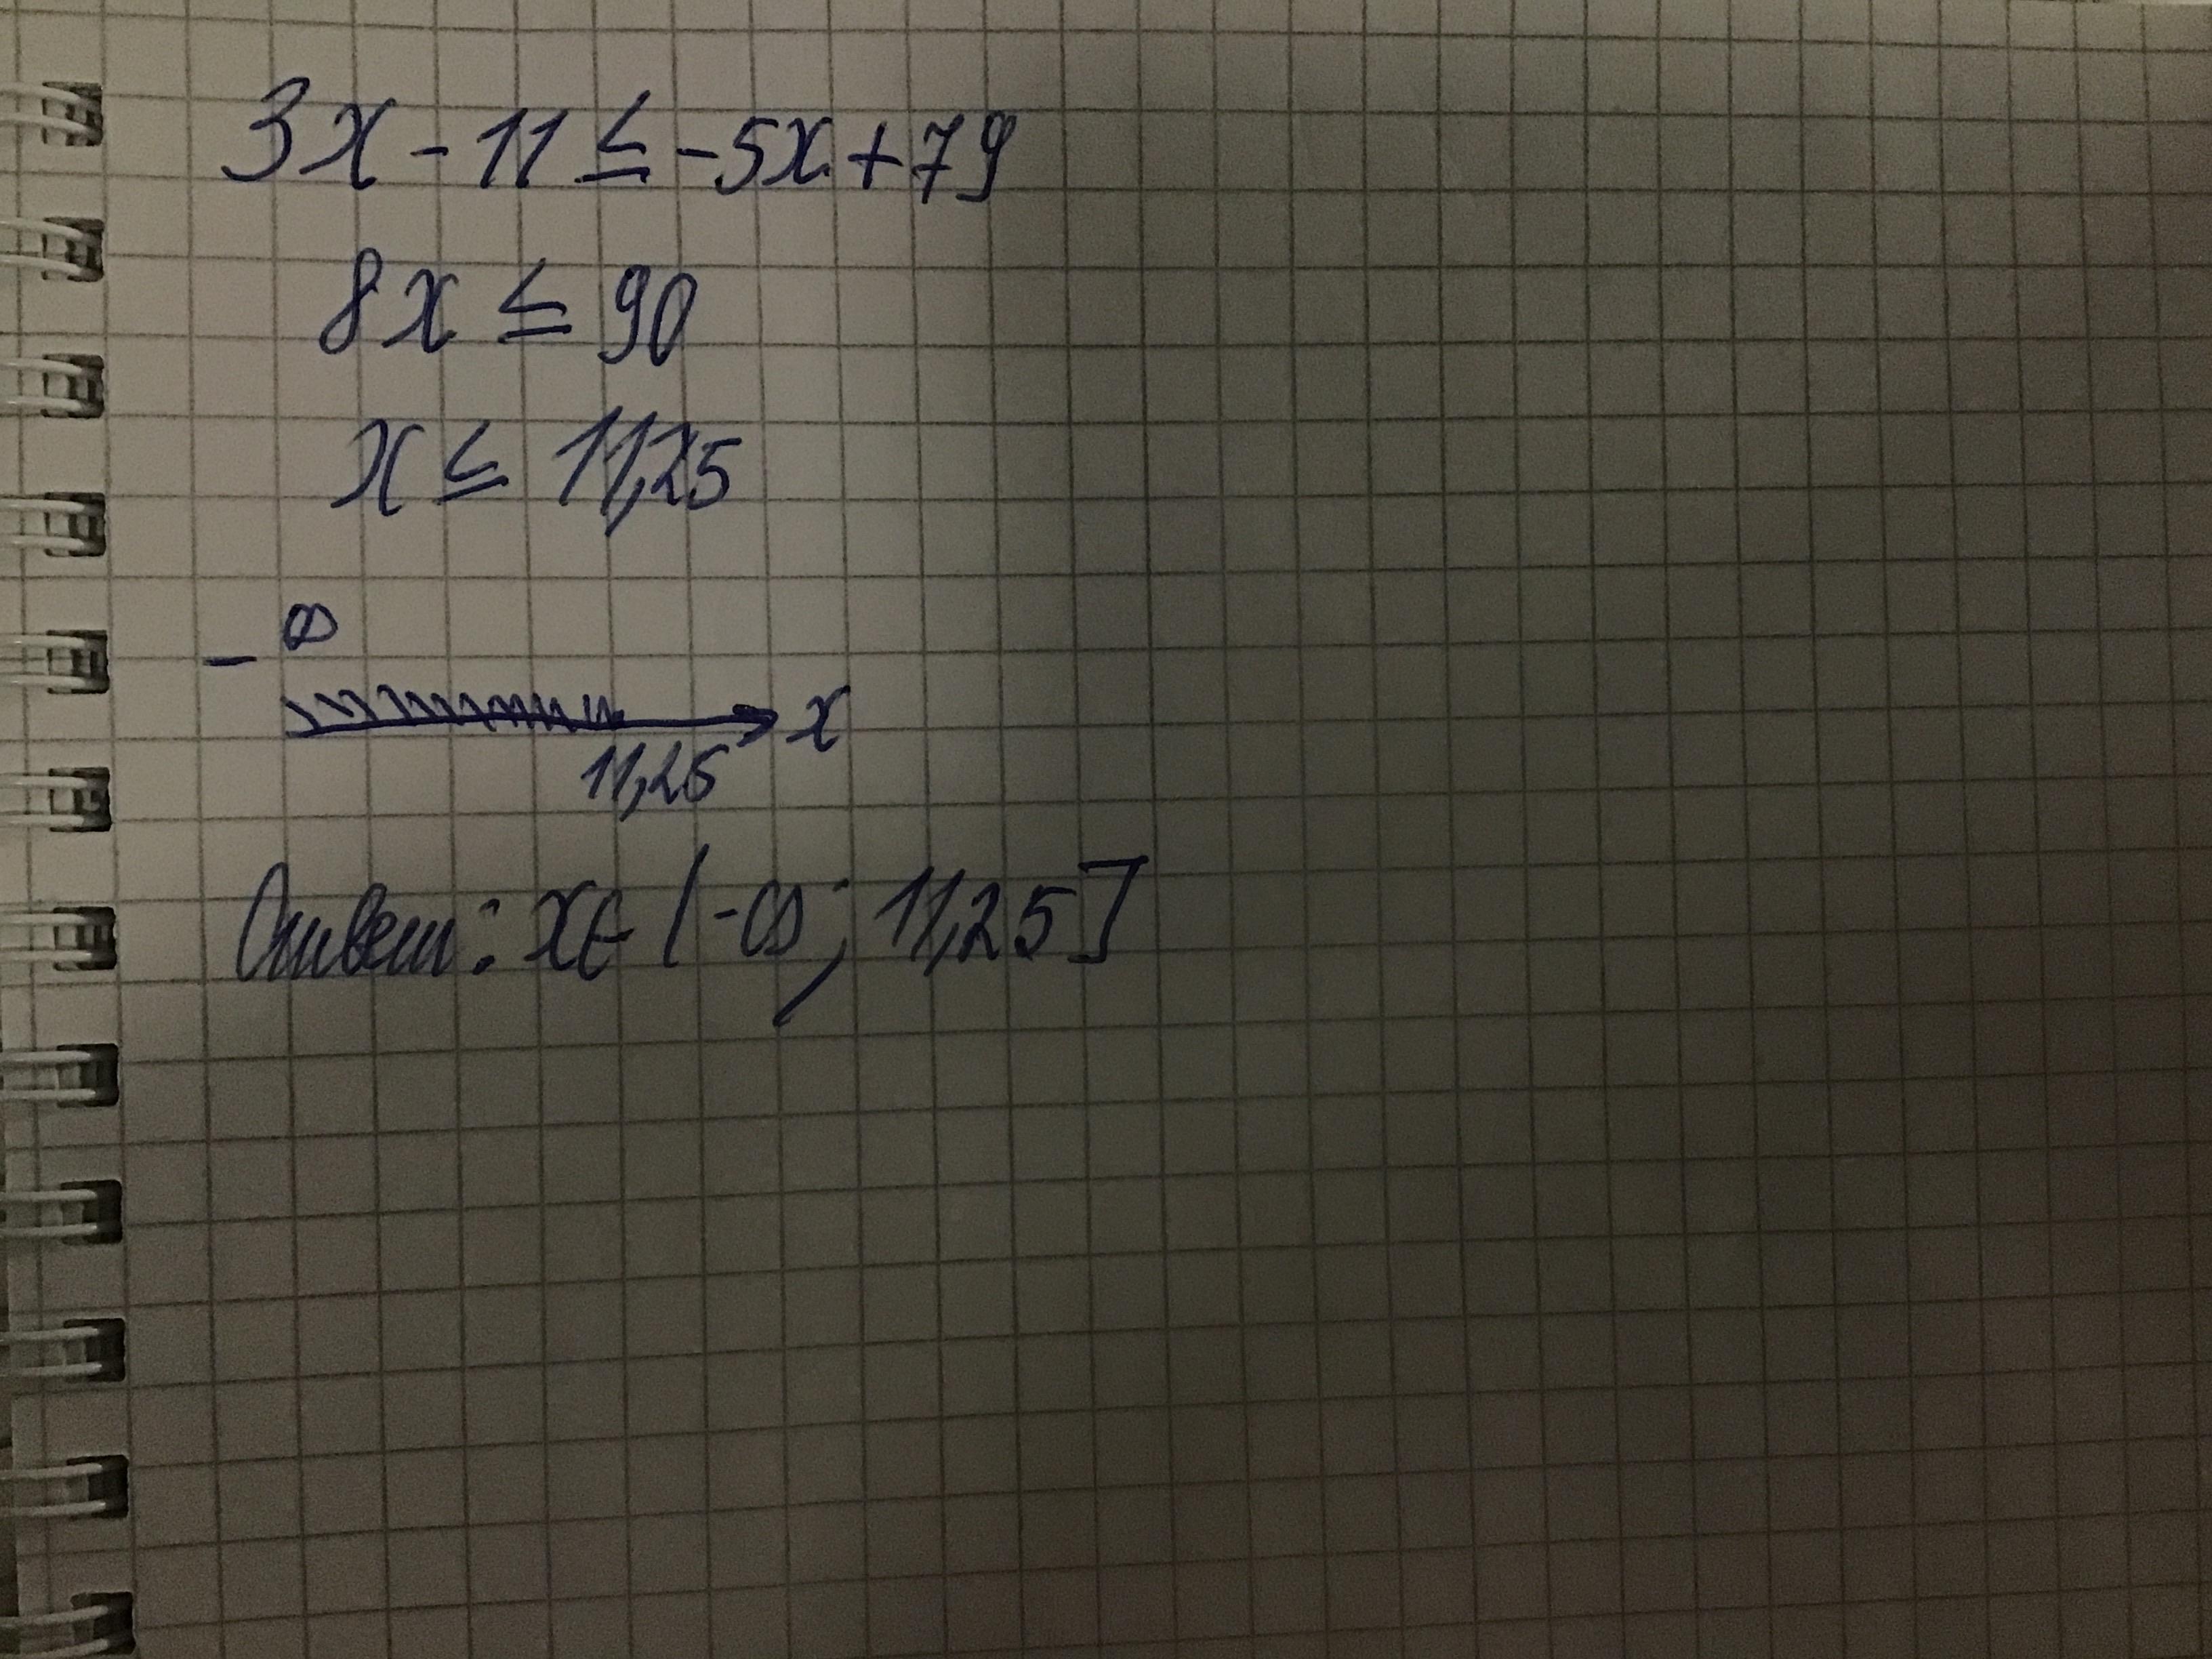 3x - 11 ≤ -5x + 79
8x ≤ 90
x ≤ 11,25
-∞
x
11,25
Ответ: x∈ (-∞; 11,25]